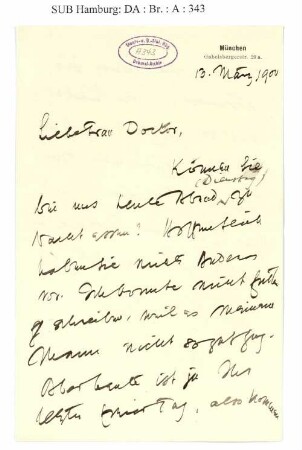 SUB Hamburg: DA : Br. : A : 343
München
Gabelsbergerstr. 20a.
13. März, 1900
Liebe Frau Doctor,
Können Sie
(Dienstag)
bei uns heute Abend zu
Nacht essen? Hoffentlich
haben Sie nichts Anders
vor. Ich konnte nicht früher
schreiben, weil es meinem
Mann nicht so gut ging.
Aber heute ist ja Ihr
letzter freier Tag, also kommen